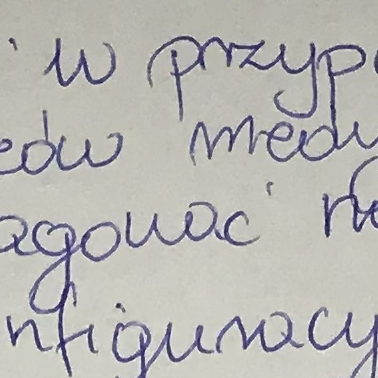 i w przyp
eów medy
agować n
nfiguracy